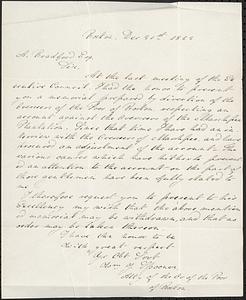 Boston, Dec 21st 1822
A. Bradford Esq.
Sir,
At the last meeting of the Ex
ecutive Council I had the honor to present
you a memorial prepared by direction of the
Overseers of the Poor of Boston respecting an
account against the Overseers of the Marshpee
Plantation. Since that time I have had an in
terview with the Overseers of Marshpee, and have
procured an adjustment of the account. The
various causes which have hitherto prevent
ed an attention to the account on the part of
those gentlemen have been fully stated to
me.
I therefore request you to present to his
Excellency my wish that the above mention
ed memorial may be withdrawn, and that no
order may be taken thereon.
I have the honor to be
With great respect
Your Obt Servt
of the Poor
of Boston